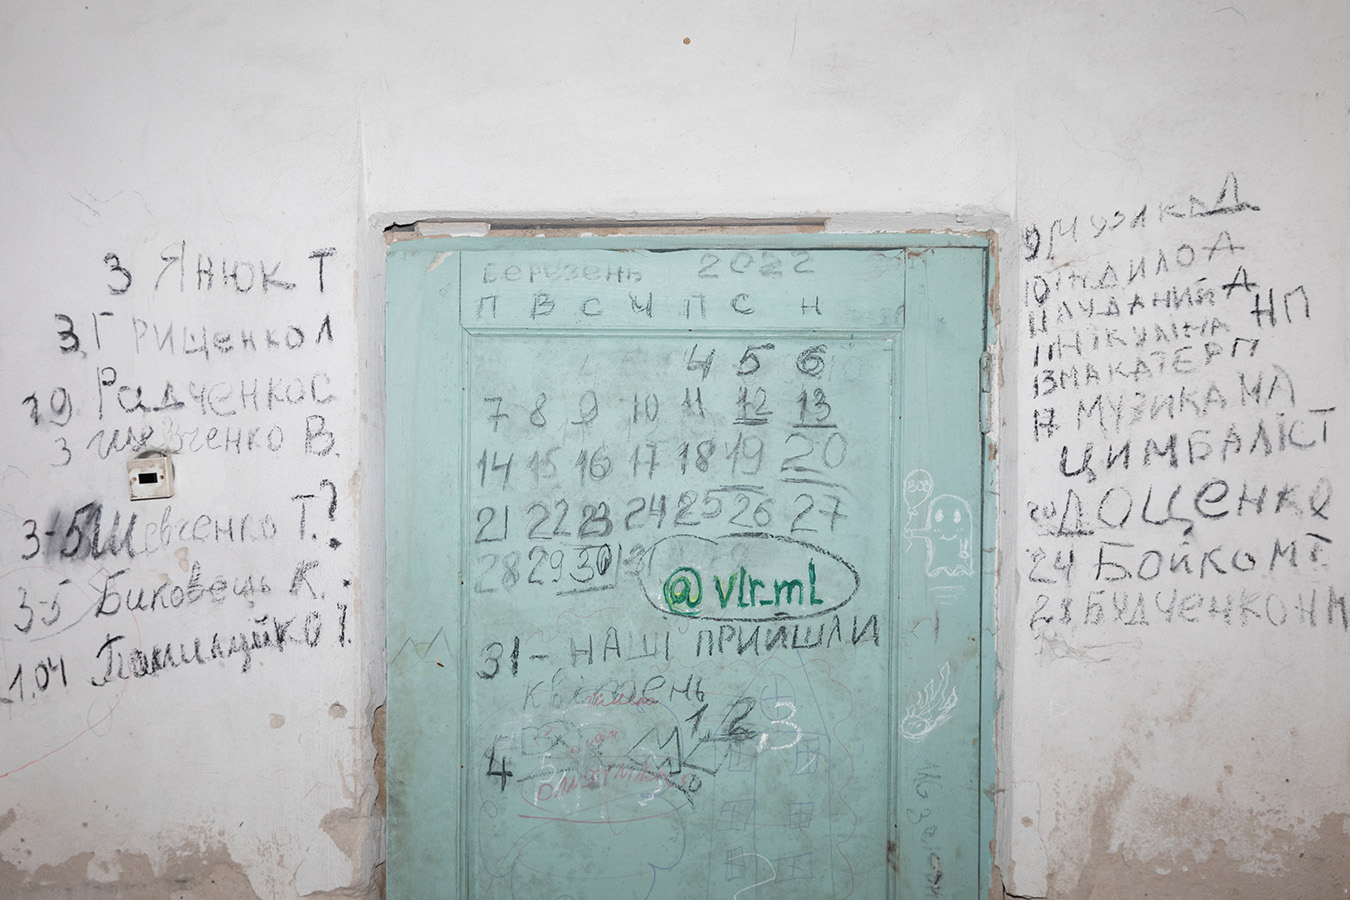 3 Янюк Т
3 Грищенко Л
19 Радченко С
3 Шевченко В.
3-5 Шевченко Т.?
3-5 Биковець К.
1.04 І.
Березень 2022
П В С Ч П С Н
4 5 6
7 8 9 10 11 12 13
14 15 16 17 18 19 20
21 22 23 24 25 26 27
28 29 30 31
@vlr_ml
31 - НАШІ ПРИЙШЛИ
квітень
1 2 3
4
5
9 Музика Д
10 А
11 А
11 НІКУЛІНА НП
13 МАКАТЕР П
17 МУЗИКА МЛ
ЦИМБАЛІСТ
20 ДОЦЕНКО
24 Бойко МТ.
28 БУДЧЕНКО НМ